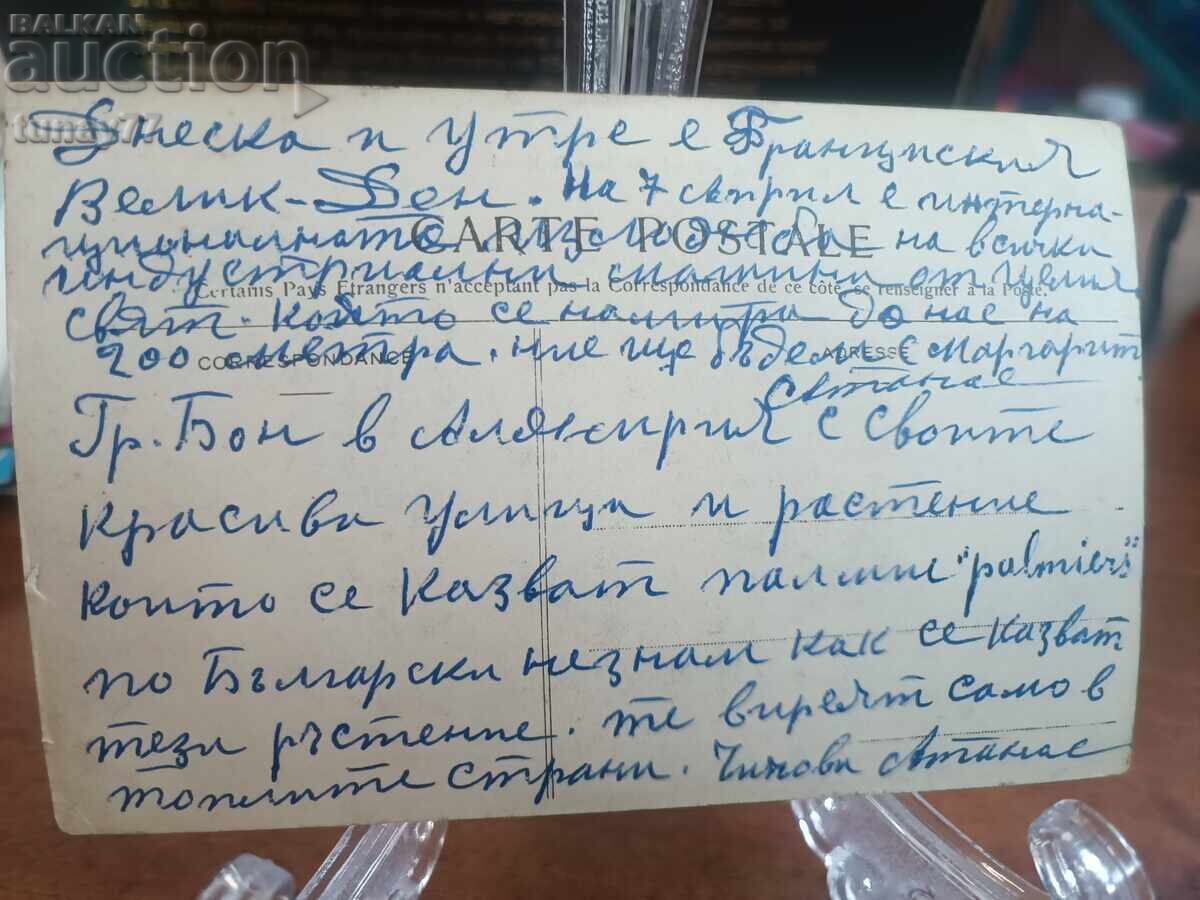 BALKAN
auction
tunay77
Днеска и утре е Французския
Велик-Ден. На 7 април е интерна-
ционалната изложба на всички
CARTE POSTALE
индустриални машини от целия
Certains Pays Etrangers n'acceptant pas la Correspondance de ce côté, se renseigner à la Poste.
свят. който се намира до нас на
200 метра. ние ще бъдем с Маргарит
CORRESPONDANCE
ADRESSE
Атанас
Гр. Бон в с своите
красиви улици и растение
които се казват палмие "palmiers"
по Български незнам как се казват
тези ръстение. те виреят само в
топлите страни. Чичови Атанас